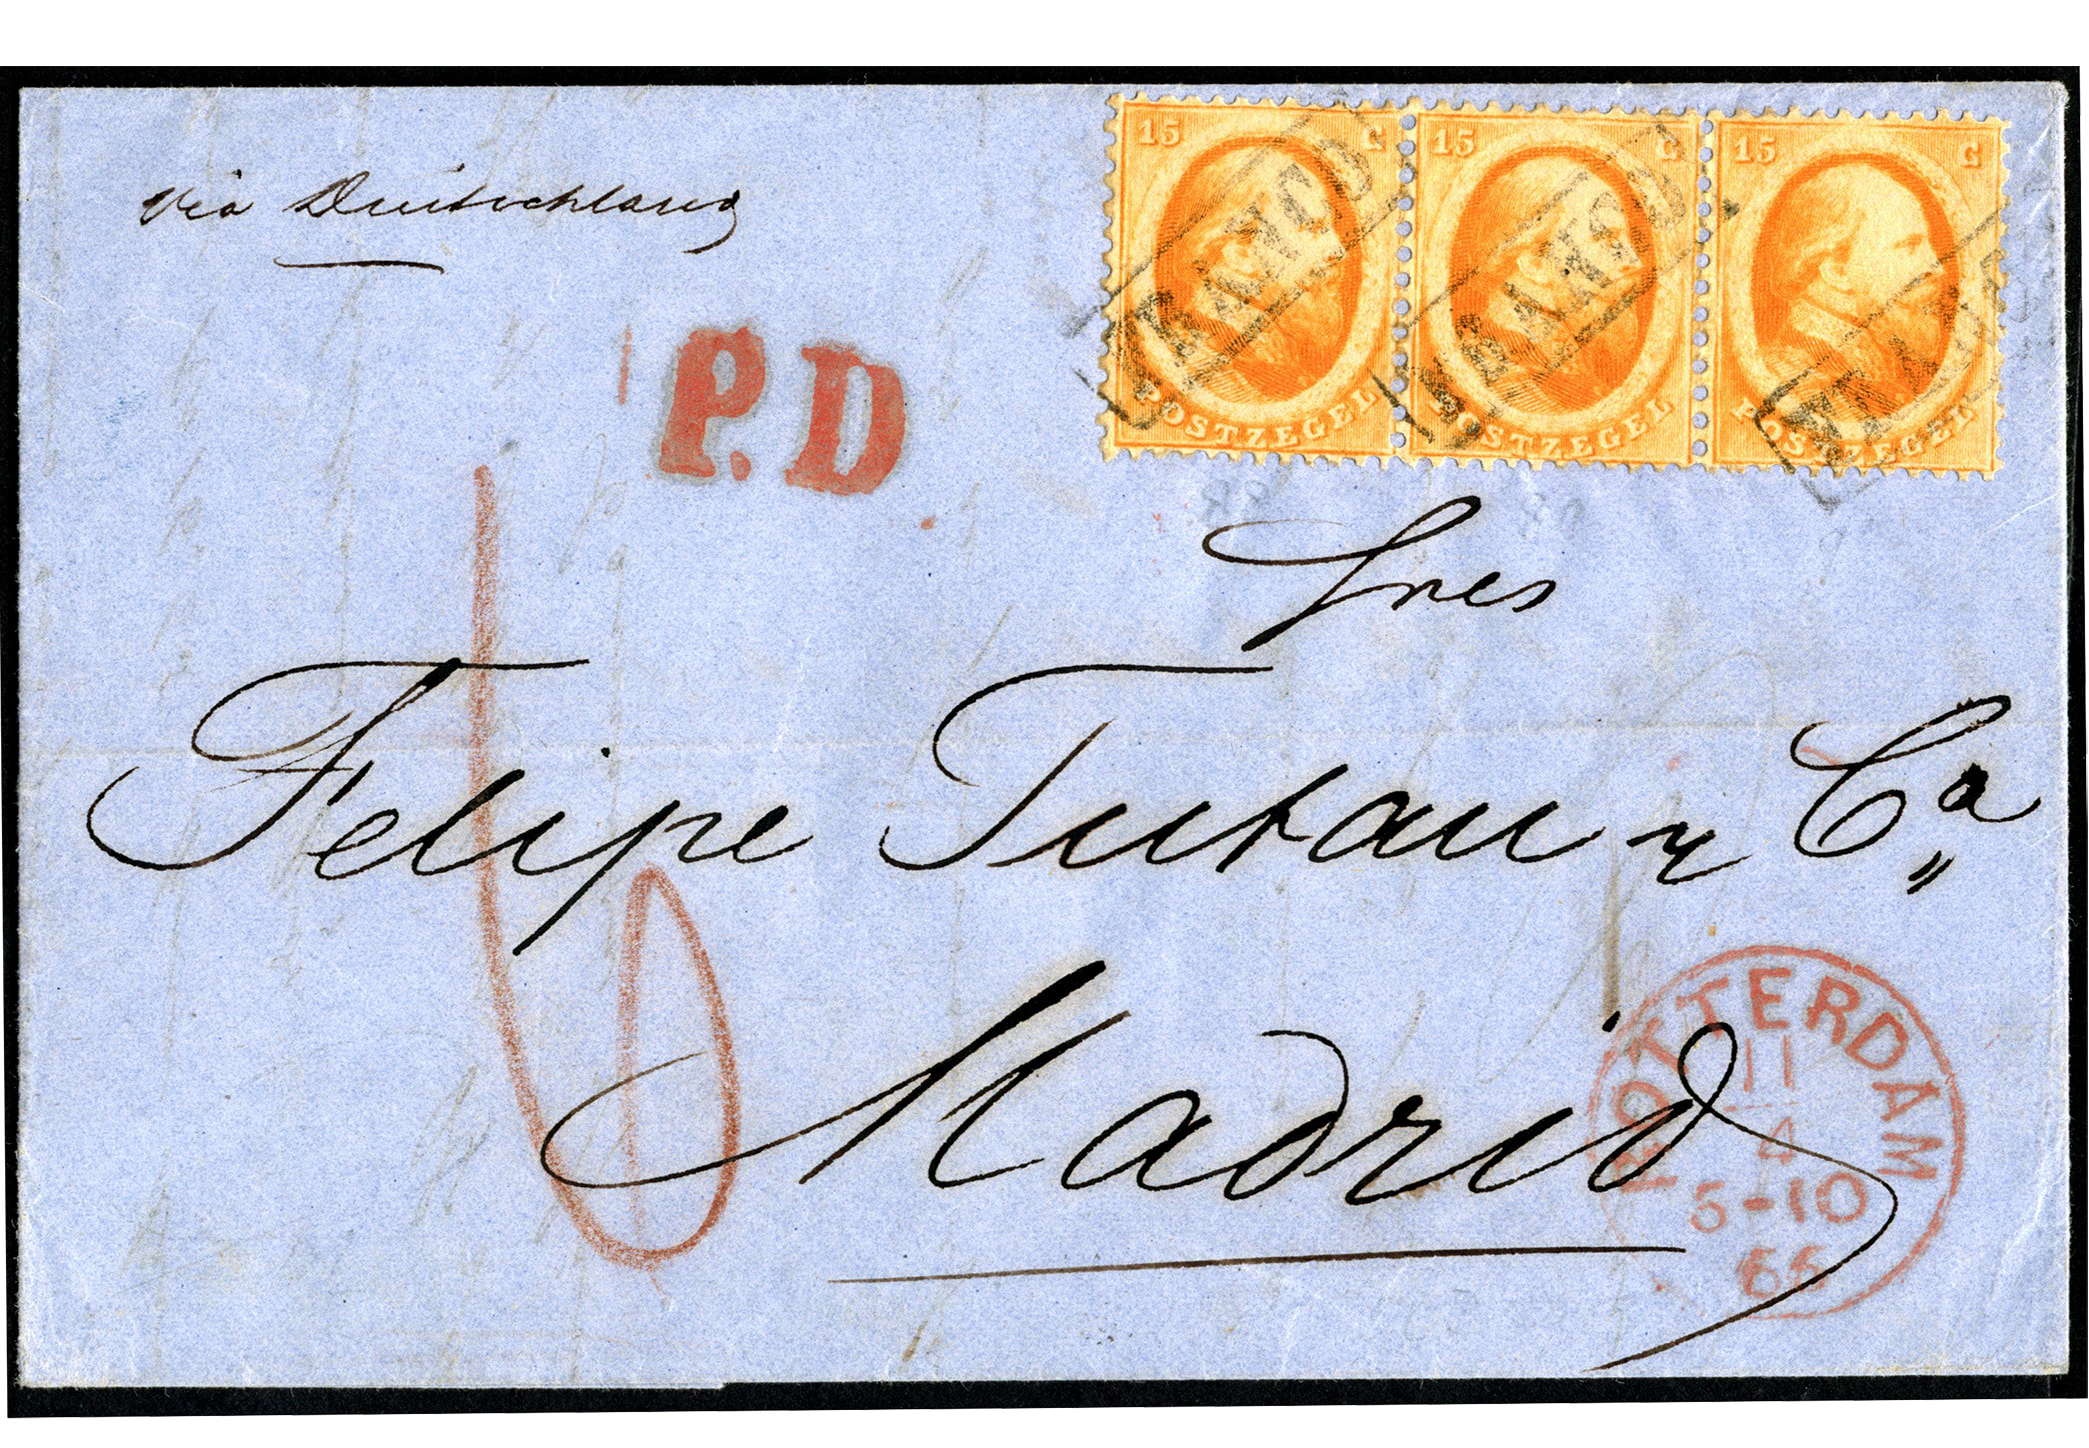 15 C 15 C 15 C
FRANCO FRANCO FRANCO
POSTZEGEL POSTZEGEL POSTZEGEL
via Deutschland
P.D.
Sres
Felipe Tutau y Ca
Madrid
ROTTERDAM
11
4
5-10
66